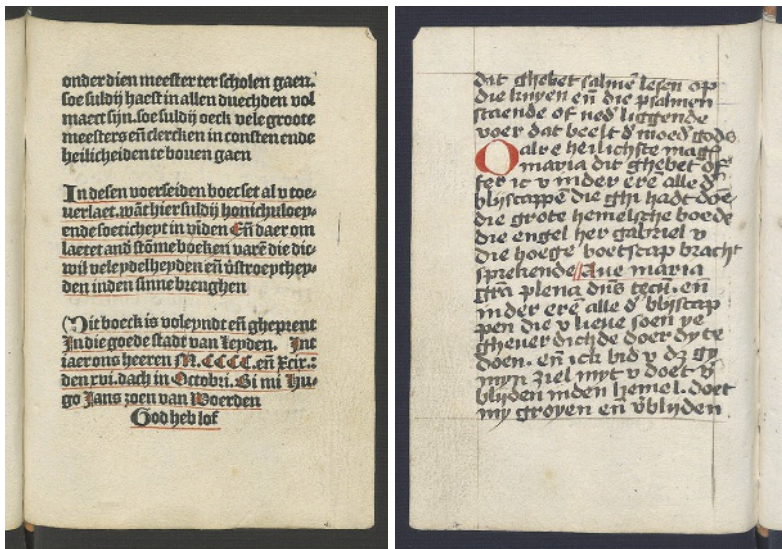 onder dien meester ter scholen gaen.
soe suldij haest in allen duechden vol
maect sijn. soe suldij oeck vele groote
meesters eñ clercken in consten ende
heilicheiden te bouen gaen
In desen voerseiden boec set al v toe-
uerlaet. wāt hier suldij honichuloey-
ende soeticheyt in viden Eñ daer om
laetet and stōme boeken varē die dic-
wil vele ydelheyden eñ v̄stroeythey-
den inden sinne brenghen
Dit boeck is voleyndt eñ gheprent
In die goede stadt van Leyden. Int
iaer ons heeren M.CCCC. eñ Xcix.:
den xvi. dach in Octobri. Bi mi Hu-
go Jans zoen van Woerden
God heb lof
dit ghebet salmē lesen op
die knyen eñ die psalmen
staende of ned' liggende
voer dat beelt d' moed' gods
O alre heilichste mag
maria dit ghebet of
fer ic v in der erē alle d'
blijscappē die ghi hadt doē
die grote hemelsche boede
die engel her gabriel v
die hoege boetscap bracht
sprekende Aue maria
gr̄a plena dn̄s tecū. en
in der erē alle d' blijscap
pen die v lieue soen ye
gheuerdichde doer dy te
doen. en ick bid v dz gy
myn ziel myt v doet v̄
blijden inden hemel. doet
my groyen eñ v̄blijden